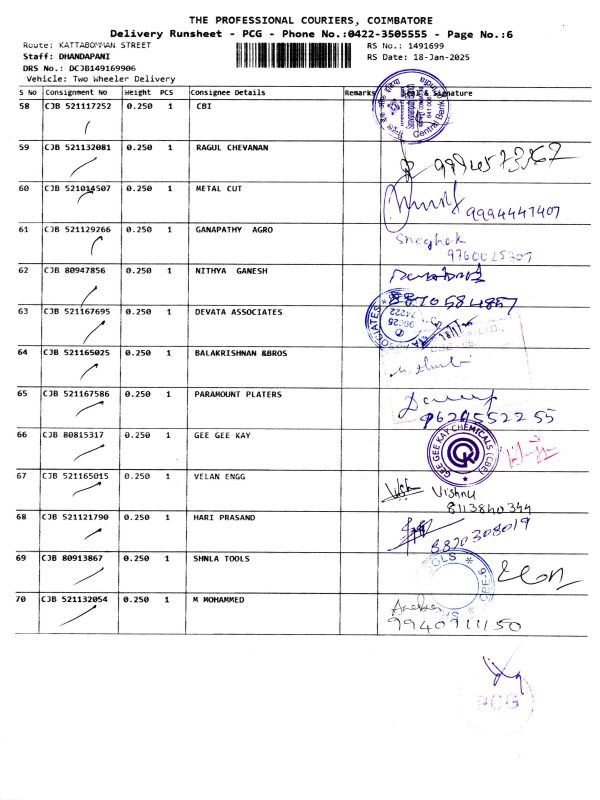 THE PROFESSIONAL COURIERS, COIMBATORE
Delivery Runsheet - PCG - Phone No.:0422-3505555 - Page No.:6
Route: KATTABOMMAN STREET RS No.: 1491699
Staff: DHANDAPANI RS Date: 18-Jan-2025
DRS No.: DCJB149169906
Vehicle: Two Wheeler Delivery
S No Consignment No Weight PCS Consignee Details Remarks Seal & Signature
58 CJB 521117252 0.250 1 CBI
Central Bank
59 CJB 521132081 0.250 1 RAGUL CHEVANAN
60 CJB 521014507 0.250 1 METAL CUT
9994447407
61 CJB 521129266 0.250 1 GANAPATHY AGRO
9760025307
62 CJB 80947856 0.250 1 NITHYA GANESH
63 CJB 521167695 0.250 1 DEVATA ASSOCIATES
64 CJB 521165025 0.250 1 BALAKRISHNAN &BROS
65 CJB 521167586 0.250 1 PARAMOUNT PLATERS
66 CJB 80815317 0.250 1 GEE GEE KAY
GEE GEE KAY CHEMICALS (CBE)
67 CJB 521165015 0.250 1 VELAN ENGG
Vishnu
8113840344
68 CJB 521121790 0.250 1 HARI PRASAND
8870308019
69 CJB 80913867 0.250 1 SHNLA TOOLS
70 CJB 521132054 0.250 1 M MOHAMMED
PCG